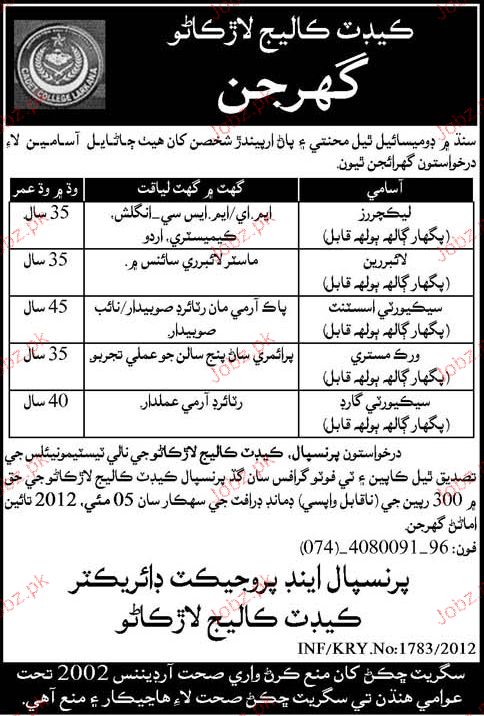 ڪيڊٽ ڪاليج لاڙڪاڻو
گهرجن
CADET COLLEGE LARKANA
سنڌ ۾ ڊوميسائيل ٿيل محنتي ۽ پاڻ ارپيندڙ شخصن کان هيٺ ڄاڻايل آسامين لاءِ
درخواستون گهرائجن ٿيون.
آسامي گهٽ ۾ گهٽ لياقت وڌ ۾ وڌ عمر
ليڪچررز ايم.اي/ايم.ايس سي_انگلش، 35 سال
(پگهار ڳالهه ٻولهه قابل) ڪيميسٽري، اردو
لائبررين ماسٽر لائبرري سائنس ۾. 35 سال
(پگهار ڳالهه ٻولهه قابل)
سيڪيورٽي اسسٽنٽ پاڪ آرمي مان رٽائرڊ صوبيدار/نائب 45 سال
(پگهار ڳالهه ٻولهه قابل) صوبيدار.
ورڪ مستري پرائمري ساڻ پنج سالن جو عملي تجربو 35 سال
(پگهار ڳالهه ٻولهه قابل)
سيڪيورٽي گارڊ رٽائرڊ آرمي عملدار. 40 سال
(پگهار ڳالهه ٻولهه قابل)
درخواستون پرنسپال، ڪيڊٽ ڪاليج لاڙڪاڻو جي نالي ٽيسٽيمونيئلس جي
تصديق ٿيل ڪاپين ۽ ٽي فوٽو گرافس سان گڏ پرنسپال ڪيڊٽ ڪاليج لاڙڪاڻو جي حق
۾ 300 رپين جي (ناقابل واپسي) ڊمانڊ ڊرافٽ جي سهڪار سان 05 مئي، 2012 تائين
اماڻڻ گهرجن.
فون: 96_4080091_(074)
پرنسپال اينڊ پروجيڪٽ ڊائريڪٽر
ڪيڊٽ ڪاليج لاڙڪاڻو
INF/KRY.No:1783/2012
سگريٽ ڇڪڻ کان منع ڪرڻ واري صحت آرڊيننس 2002 تحت
عوامي هنڌن تي سگريٽ ڇڪڻ صحت لاءِ هاڃيڪار ۽ منع آهي.
Jobz.pk